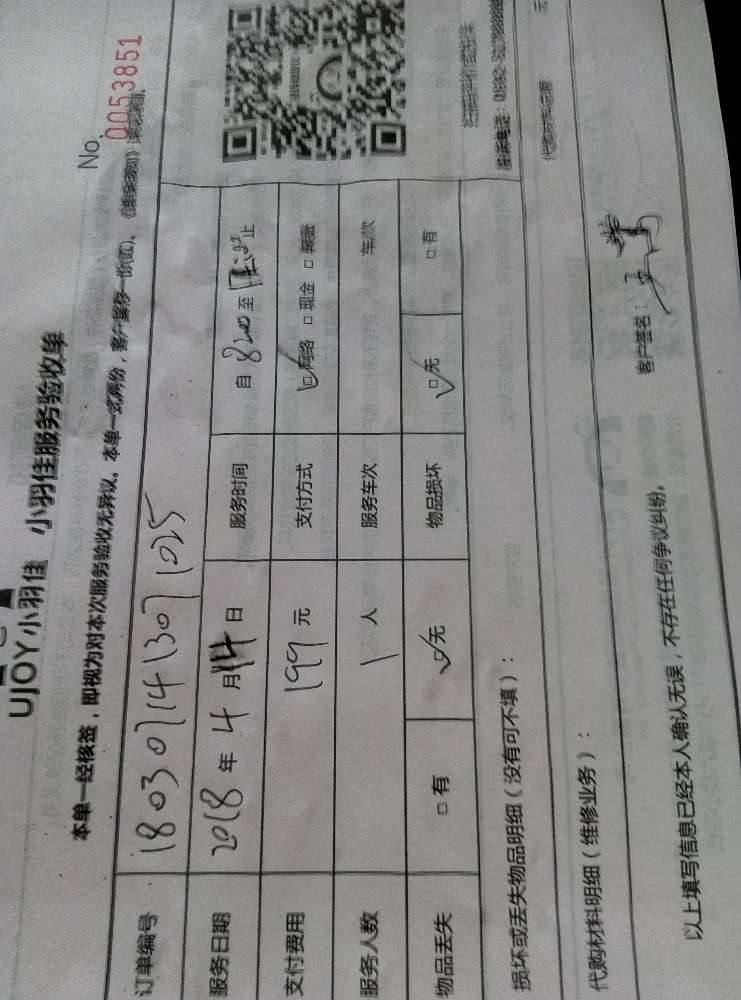 UJOY小羽佳 小羽佳服务验收单
No. 0053851
本单一经核签，即视为对本次服务验收无异议。本单一式两份，客户留存一份(红)。
订单编号 180307141307 1025
服务日期 2018年4月14日 服务时间 自 800 至 止
支付费用 199元 支付方式 ☑网络 □现金 □转账
服务人数 1人 服务车次 车/次
物品丢失 □有 ☑无 物品损坏 ☑无 □有
损坏或丢失物品明细（没有可不填）：
代购材料明细（维修业务）：
元
以上填写信息已经本人确认无误，不存在任何争议纠纷。
客户签名：